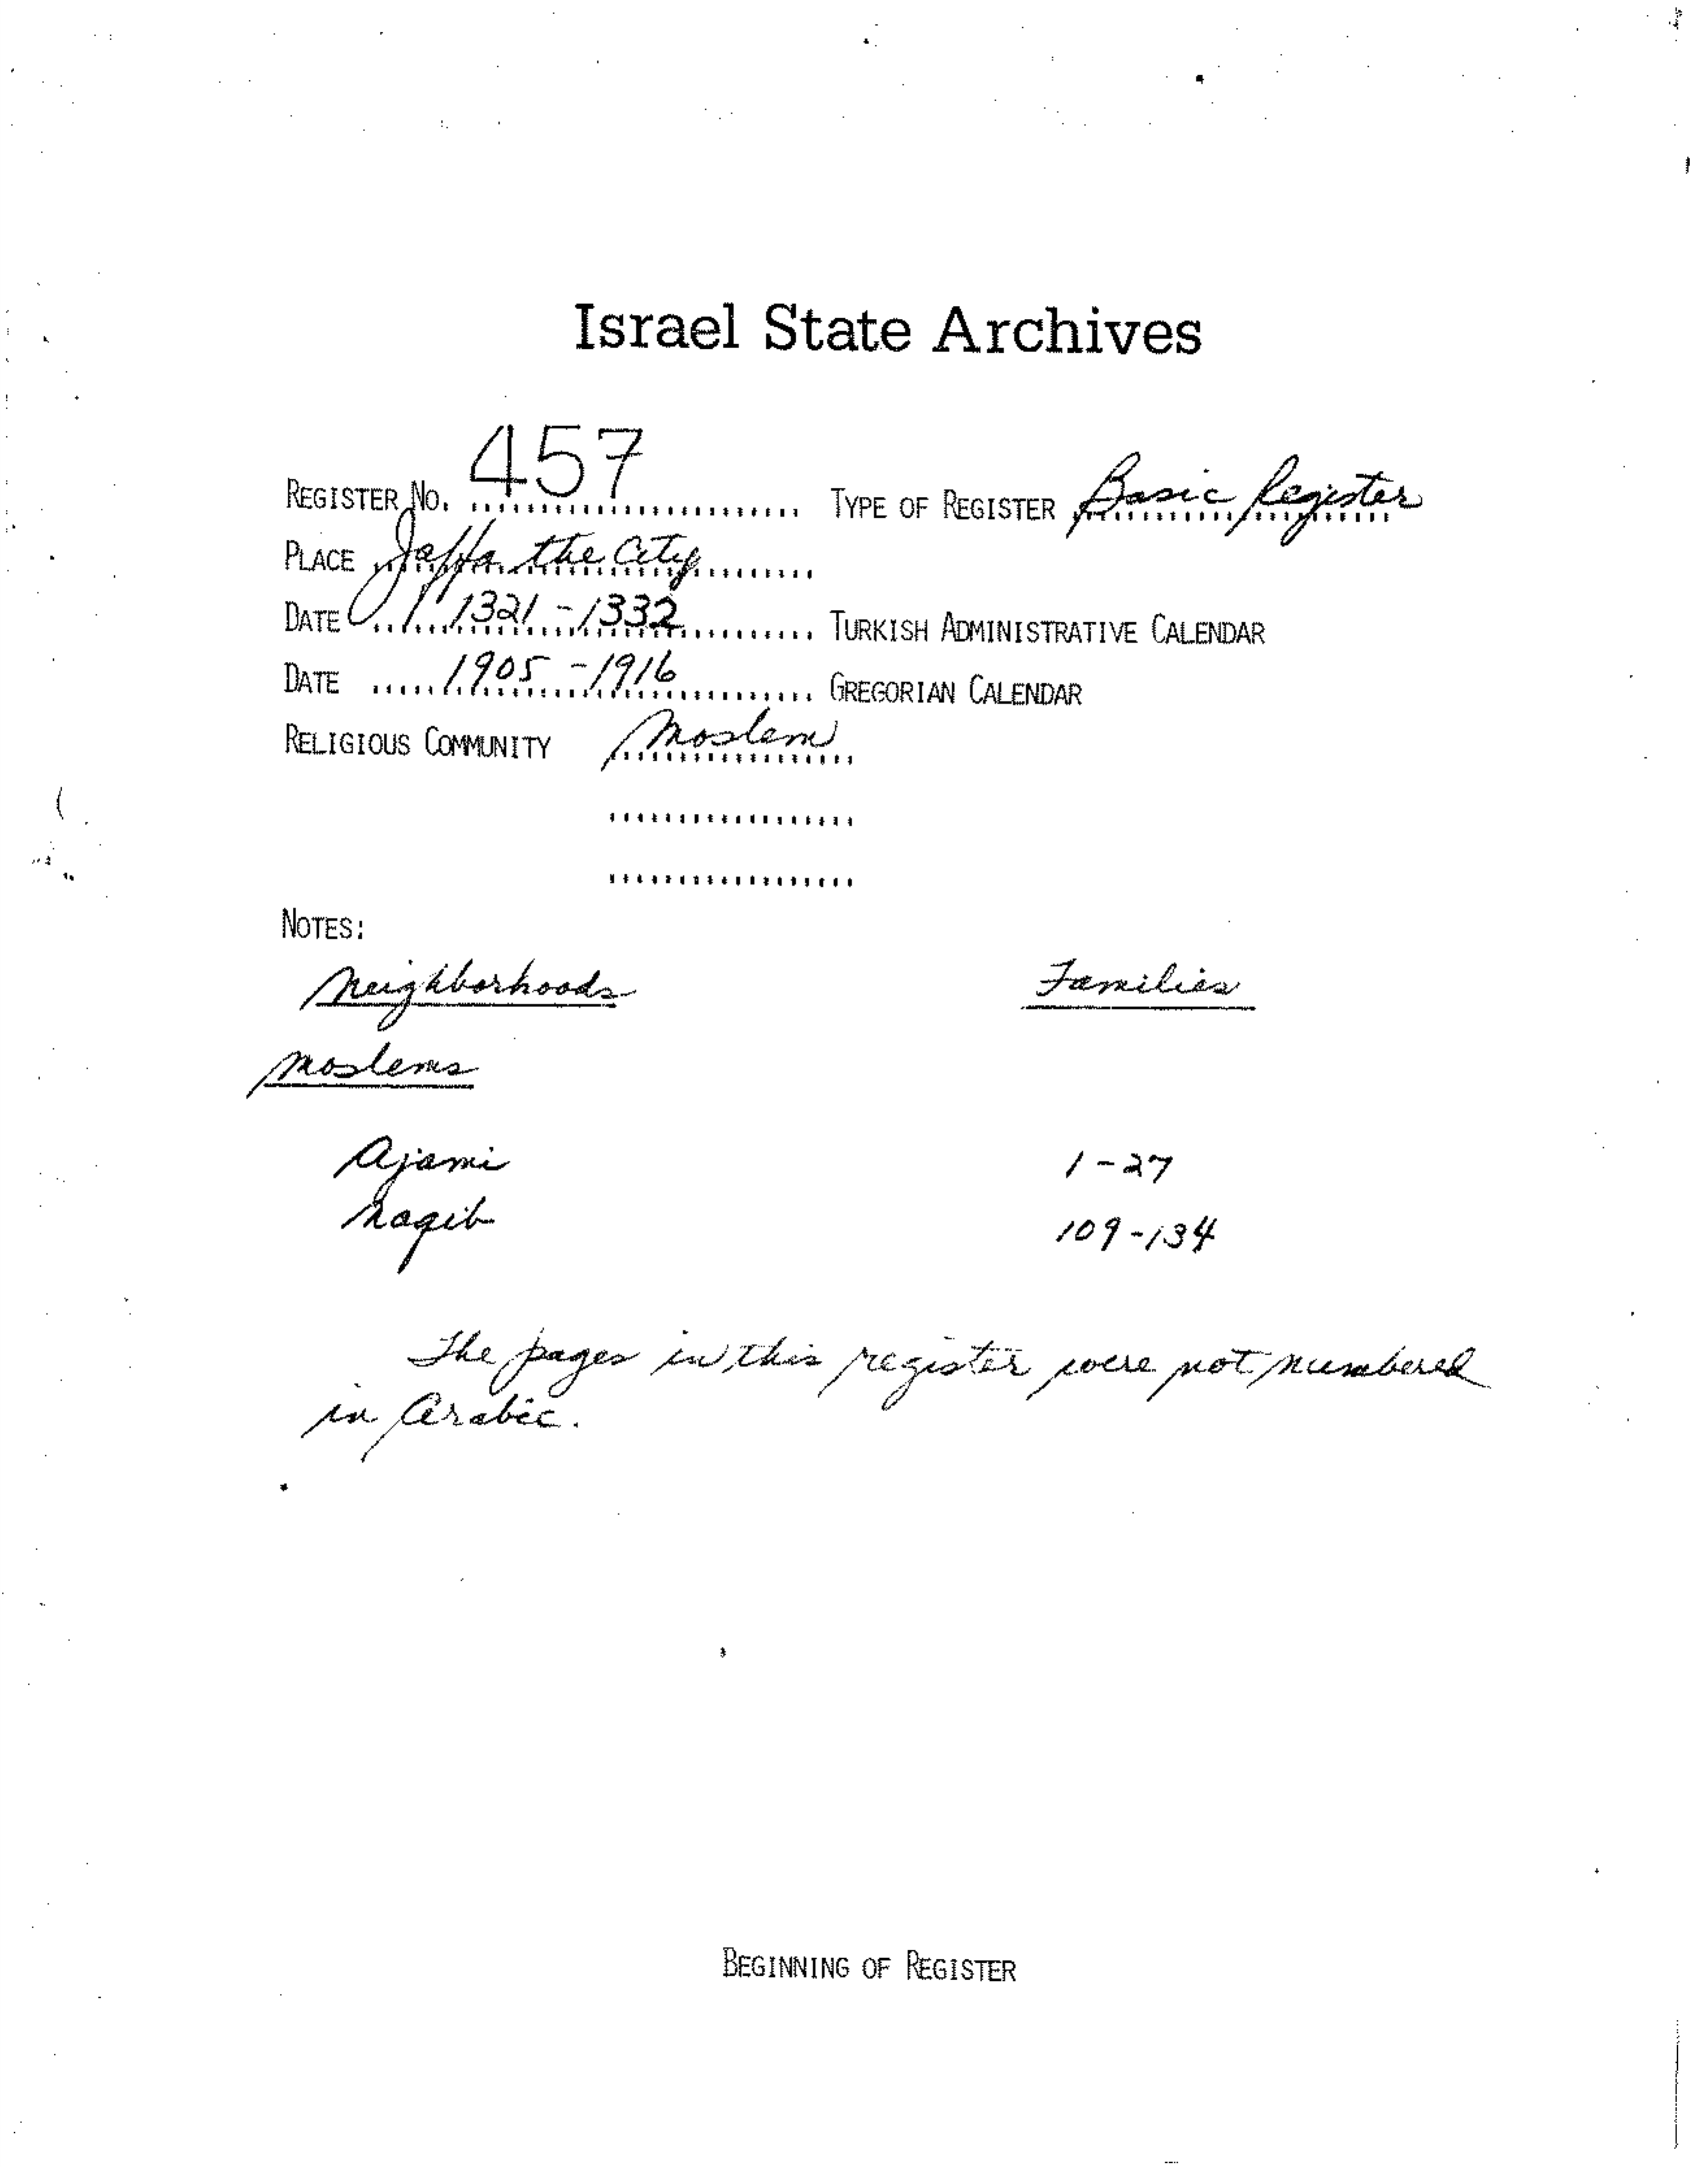 Israel State Archives
REGISTER NO. 457 TYPE OF REGISTER Basic Register
PLACE Jaffa the City
DATE 1321-1332 TURKISH ADMINISTRATIVE CALENDAR
DATE 1905-1916 GREGORIAN CALENDAR
RELIGIOUS COMMUNITY Moslem
NOTES:
Neighborhoods Families
Moslems
Ajami 1-27
Nagib 109-134
The pages in this register were not numbered
in Arabic.
BEGINNING OF REGISTER